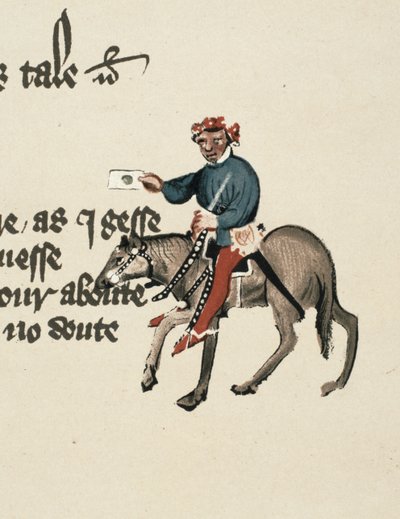 s tale
re, as I gesse
nesse
our aboute
no doute